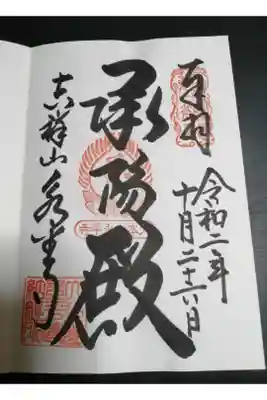 奉拝
令和二年
十月二十六日
承陽殿
吉祥山永平寺